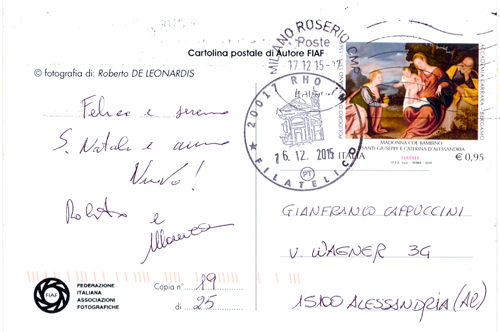 Cartolina postale di Autore FIAF
© fotografia di: Roberto DE LEONARDIS
Felice e sereno
S. Natale e anno
Nuovo!
Roberto e
FIAF
FEDERAZIONE
ITALIANA
ASSOCIAZIONI
FOTOGRAFICHE
Copia n° 19
di 25
MILANO ROSERIO CMP
Poste
17 12 15
20017 RHO
16. 12. 2015
FILATELICO
PT
ACCADEMIA CARRARA - BERGAMO
MADONNA COL BAMBINO
SANTI GIUSEPPE E CATERINA D'ALESSANDRIA
ITALIA
NATALE
€ 0,95
GIANFRANCO CAPPUCCINI
V. WAGNER 3G
15100 ALESSANDRIA (AL)